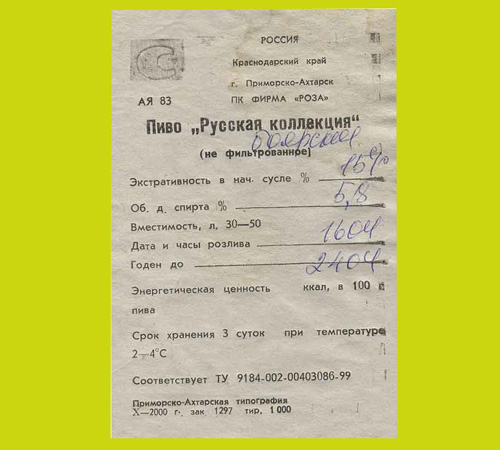 РОССИЯ
Краснодарский край
г. Приморско-Ахтарск
АЯ 83 ПК ФИРМА «РОЗА»
Пиво „Русская коллекция"
Боярский
(не фильтрованное)
Экстрактивность в нач. сусле % 15%
Об. д. спирта % 5,8
Вместимость, л. 30—50
Дата и часы розлива 1604
Годен до 2404
Энергетическая ценность ккал, в 100
пива
Срок хранения 3 суток при температуре
2—4°С
Соответствует ТУ 9184-002-00403086-99
Приморско-Ахтарская типография
Х—2000 г. зак 1297 тир. 1 000